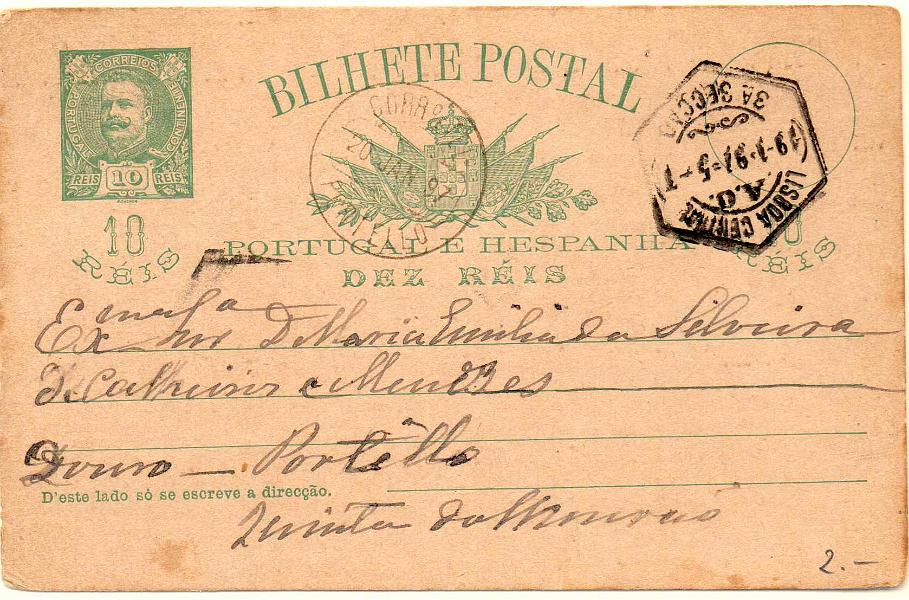 CORREIOS
PORTUGAL CONTINENTE
REIS 10 REIS
BILHETE POSTAL
CORREIO
20 JAN 97
PORTELLO
3A SECÇÃO
19-1-97=5-T
A.G.
LISBOA CENTRAL
10 REIS
REIS
PORTUGAL E HESPANHA
DEZ RÉIS
Exma Snr D Maria Emilia da Silveira
e Menezes
Douro — Portêllo
D'este lado só se escreve a direcção.
Quinta
2.—